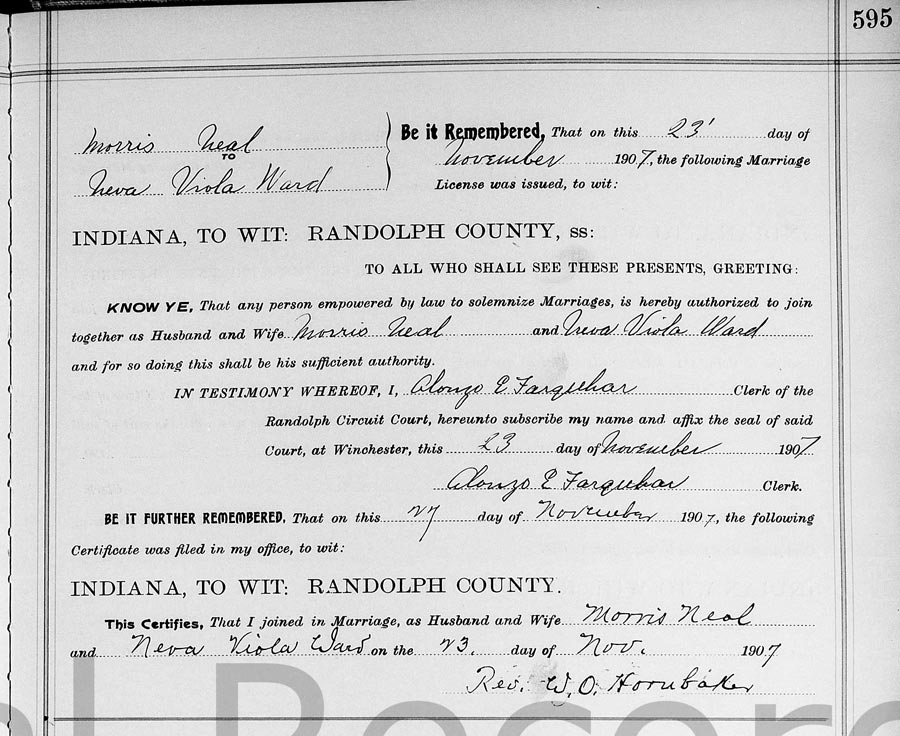 595
Morris Neal
TO
Neva Viola Ward
Be it Remembered, That on this 23' day of
November 1907, the following Marriage
License was issued, to wit:
INDIANA, TO WIT: RANDOLPH COUNTY, ss:
TO ALL WHO SHALL SEE THESE PRESENTS, GREETING:
KNOW YE, That any person empowered by law to solemnize Marriages, is hereby authorized to join
together as Husband and Wife Morris Neal and Neva Viola Ward
and for so doing this shall be his sufficient authority.
IN TESTIMONY WHEREOF, I, Alonzo E Farquhar Clerk of the
Randolph Circuit Court, hereunto subscribe my name and affix the seal of said
Court, at Winchester, this 23 day of November 1907
Alonzo E Farquhar Clerk.
BE IT FURTHER REMEMBERED, That on this 27 day of November 1907, the following
Certificate was filed in my office, to wit:
INDIANA, TO WIT: RANDOLPH COUNTY.
This Certifies, That I joined in Marriage, as Husband and Wife Morris Neal
and Neva Viola Ward on the 23. day of Nov. 1907
Rev. W. O. Hornbaker